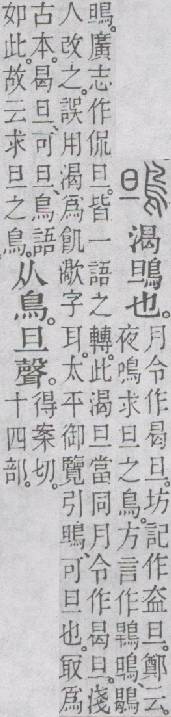 鴠 渴鴠也。月令作曷旦。坊記作盍旦。鄭云。
夜鳴求旦之鳥。方言作鴠鶡
鴠。廣志作侃旦。皆一語之轉。此渴旦當同月令作曷旦。淺
人改之。誤用渴爲飢㵣字耳。太平御覽引鴠、可旦也。冣爲
古本。曷旦、可旦、鳥語
如此。故云求旦之鳥。
从鳥。旦聲。得案切。
十四部。